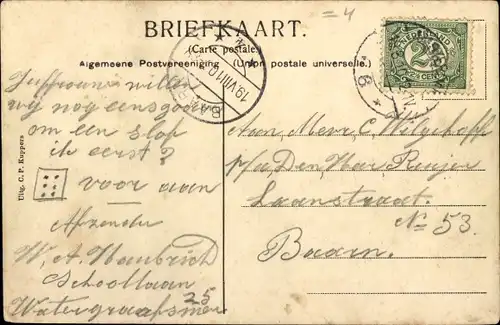 =4
BRIEFKAART.
(Carte postale)
Algemeene Postvereeniging (Union postale universelle).
NEDERLAND
2½
2½ CENT
19 VIII 10
BAARN
6
Juffrouw willen
wij nog eens gooien
om een slof
ik eerst?
voor aan
Afzender
W. A. Haubrich
Schoollaan
25
Watergraafsmeer
Aan Mevr. C.
p/a Den Heer Ruijer
Laanstraat.
No 53.
Baarn.
Uitg. C. P. Kuppers